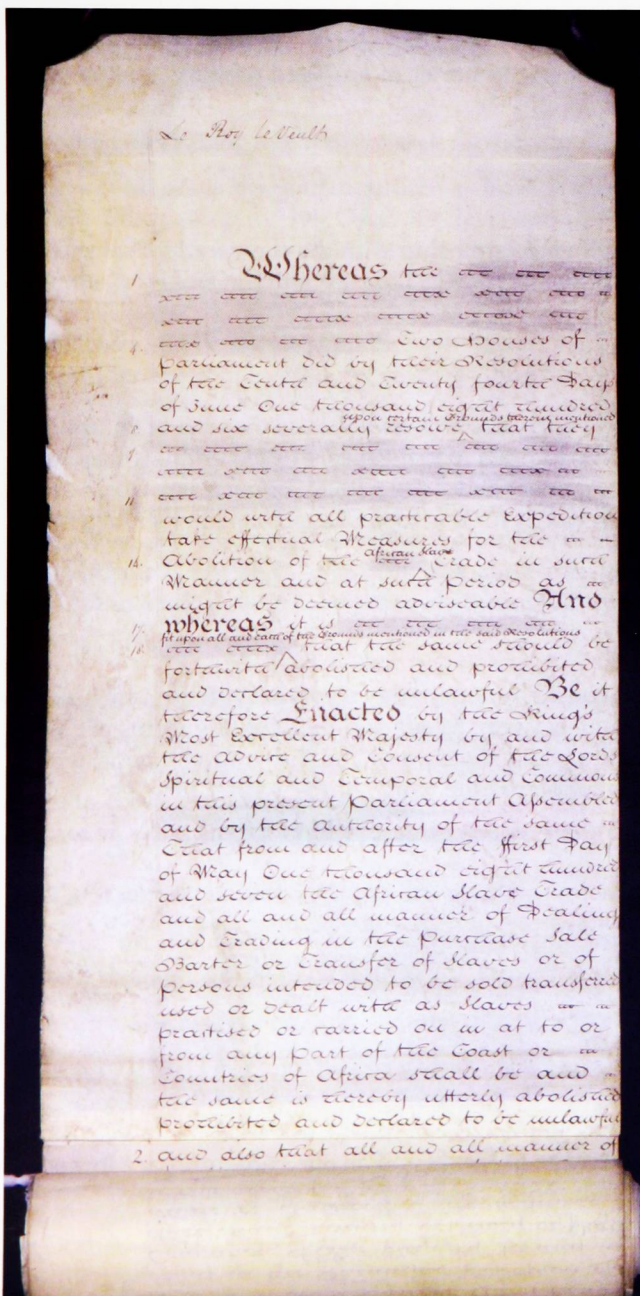 Le Roy le Veult
1 Whereas the
4. Two Houses of
Parliament did by their Resolutions
of the Tenth and Twenty fourth Days
of June One thousand eight hundred
upon certain Grounds therein mentioned
8 and six severally resolve that they
9
11
would with all practicable Expedition
take effectual Measures for the
African Slave
14. Abolition of the Trade in such
Manner and at such Period as
might be deemed adviseable And
17 whereas it is
fit upon all and each of the Grounds mentioned in the said Resolutions
18. that the same should be
forthwith abolished and prohibited
and declared to be unlawful Be it
therefore Enacted by the King's
Most Excellent Majesty by and with
the Advice and Consent of the Lords
Spiritual and Temporal and Commons
in this present Parliament Assembled
and by the Authority of the same
That from and after the ffirst Day
of May One thousand eight hundred
and seven the African Slave Trade
and all and all manner of Dealing
and Trading in the Purchase Sale
Barter or Transfer of Slaves or of
Persons intended to be sold transferred
used or dealt with as Slaves
practised or carried on in at to or
from any Part of the Coast or
Countries of Africa shall be and
the same is hereby utterly abolished
prohibited and declared to be unlawful
2. and also that all and all manner of